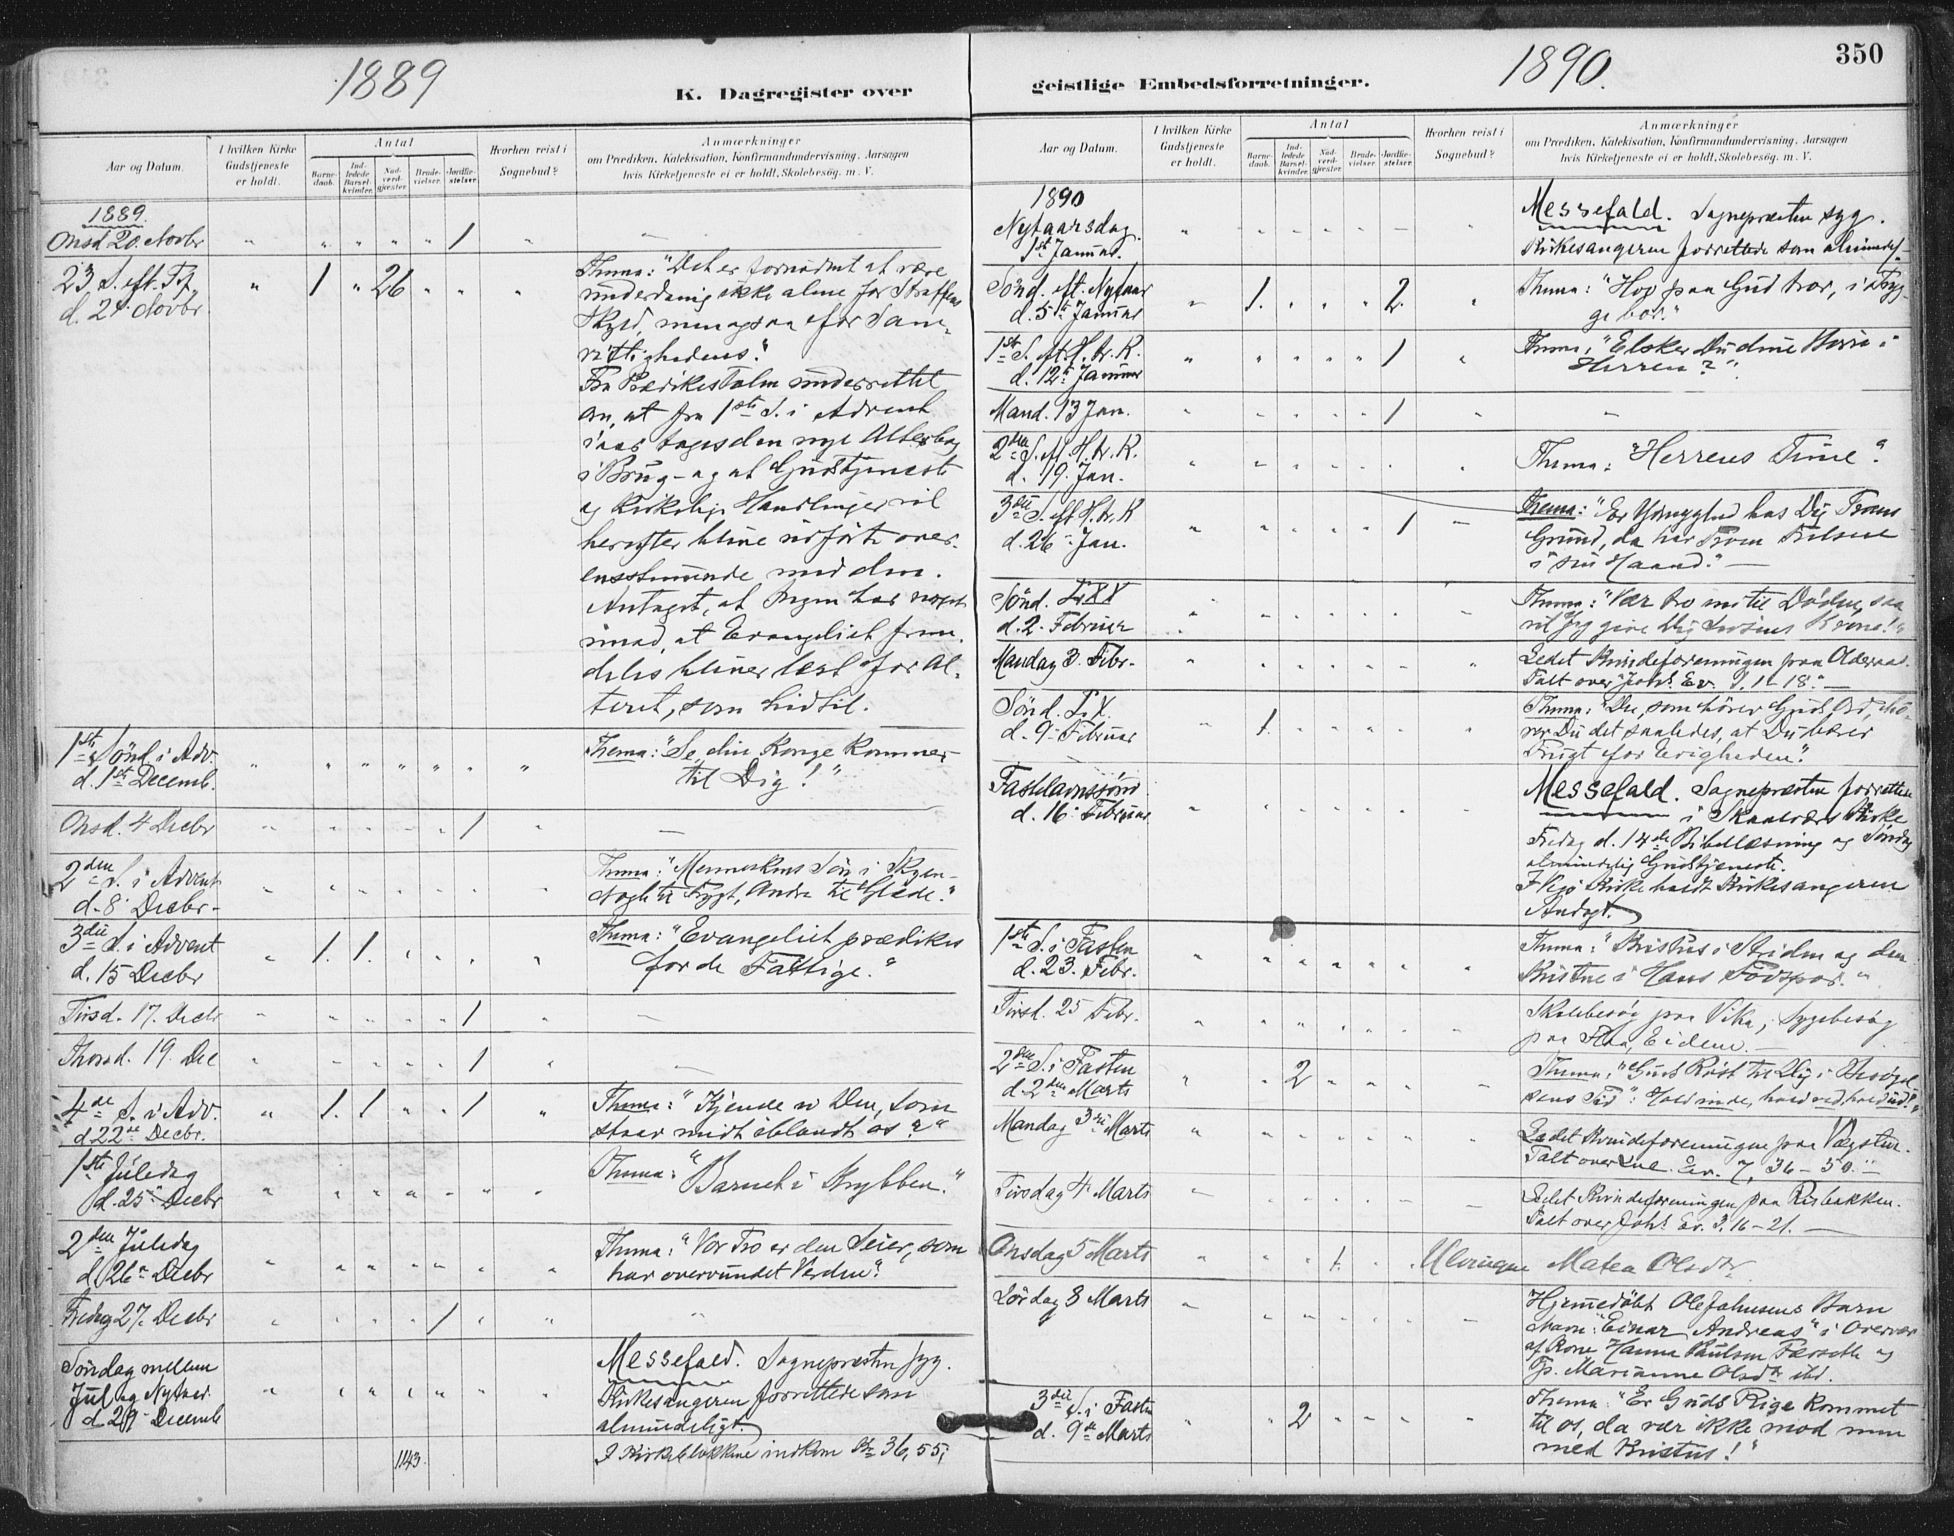 1889
K. Dagregister over
Aar og Datum.
I hvilken Kirke
Gudstjeneste
er holdt.
Antal
Barne-
daab.
Ind-
ledede
Barsel-
kvinder.
Nad-
verd-
gjester.
Brude-
vielser.
Jordfæ-
stelser.
Hvorhen reist i
Sognebud?
Anmærkninger
om Prædiken, Katekisation, Konfirmandundervisning, Aarsagen
hvis Kirketjeneste ei er holdt, Skolebesøg. m. V.
1889.
Onsd 20. Novbr " " " " " 1 " —
23 S. eft. Tf. " 1 " 26 " " " Thema: "Det er fornødent at være
d. 24. Novbr underdanig ikke alene for Straffens
Skyld, men ogsaa for Sam-
vittighedens."
Fra Prædikestolen underrettet
om, at fra 1ste S. i Advent
iaar tages den nye Alterbog
i Brug - og at Gudstjeneste
og Kirkelige Handlinger vil
herefter blive udførte over-
ensstemmende med den.
Antaget, at Ingen har noget
imod, at Evangeliet frem-
deles bliver læst for Al-
teret, som hidtil.
1ste Sønd i Adv. Thema: "Se, din Konge kommer
d. 1ste Decemb. til Dig!"
Onsd. 4 Decbr 1 —
2den S. i Advent Thema: "Menneskens Søn i Skyen-
d. 8 Decbr - Nogle til Frygt, Andre til Glæde."
3die S. i Advent 1. 1. Thema: "Evangeliet prædikes
d. 15 Decbr for de Fattige."
Tirsd. 17. Decbr 1 —
Thorsd. 19. Dec 1 —
4de S. i Adv. 1. 1 1 Thema: "Kjende vi Den, som
d 22de Decbr. staar midt iblandt os?"
1ste Juledag Thema: "Barnet i Krybben."
d. 25 Decbr
2den Juledag Thema: "Vor Tro er den Seier, som
d. 26 Decbr har overvundet Verden."
Fredag 27. Decbr 1 "
Søndag mellem Messefald. Sognepræsten syg.
Jul og Nytaar Kirkesangeren forrettede som
d 29 Decemb almindeligt.
1143. I Kirkeblokkene indkom Kr 36,55;
1890.
350
geistlige Embedsforretninger.
Aar og Datum.
I hvilken Kirke
Gudstjeneste
er holdt.
Antal
Barne-
daab.
Ind-
ledede
Barsel-
kvinder.
Nad-
verd-
gjester.
Brude-
vielser.
Jordfæ-
stelser.
Hvorhen reist i
Sognebud?
Anmærkninger
om Prædiken, Katekisation, Konfirmandundervisning, Aarsagen
hvis Kirketjeneste ei er holdt, Skolebesøg. m. V.
1890
Nytaarsdag Messefald. Sognepræsten syg.
1ste Januar. Kirkesangeren forrettede som almindel.
Sønd. eft. Nytaar 1. 2. Thema: "Hvo paa Gud tror, i Tryg-
d. 5te Januar ge bor."
1ste S. eft. H. tr. K. 1 Thema: "Elsker Du dine Børn i
d. 12te Januar Herren?"
Mand. 13 Jan. 1 —
2den S. eft. H. tr. K. Thema: "Herrens Time".
d. 19. Jan.
3die S. eft H. tr. K 1 — Thema: "Er Ydmyghed hos Dig Troens
d. 26 Jan. Grund, da har Troen Frelsen
i sin Haand." —
Sønd. LXX Thema: "Vær tro ind til Døden, saa
d. 2. Februar vil Jeg give Dig Livsens Krone!"
Mandag 3. Febr. Ledet Kvindeforeningen paa Alderaas.
Talt over "Joh. Ev. 1, 1-18." —
Sønd. LX. 1. Thema: "Du, som hører Guds Ord,
d. 9 Februar Du det saaledes, at Du bærer
Frugt for Evigheden."
Fastelavnssønd Messefald. Sognepræsten forrettede
d. 16 Februar i Skaalvær Kirke
Fredag d. 14de Bibellæsning og Søndag
almindelig Gudstjeneste.
I Kirke holdt Kirkesangeren
Andagt.
1ste S. i Fasten Thema: "Kristus i Striden og den
d. 23. Febr. Kristne i Hans Fodspor."
Tirsd. 25 Febr. Skolebesøg paa Vika, Sygebesøg
paa Flaa, Eidem. —
2den S. i Fasten 2 Thema: "Guds Røst til Dig i Besøgel-
d. 2den Marts sens Tid": Hold inde, hold ved, hold ud!"
Mandag 3die Marts Ledet Kvindeforeningen paa Vægsten.
Talt over Luc. Ev. 7, 36-50."
Tirsdag 4 Marts Ledet Kvindeforeningen paa Risbakken.
Talt over Joh. Ev. 3, 16-21. —
Onsdag 5 Marts 1. Matea Olsdtr
Lørdag 8 Marts Hjemmedøbt Ole Johnsens Barn
Navn: "Einar Andreas" i Overvær
af Kone Hanna Paulsen Færseth og
Marianne Olsdtr ibd.
3die S. i Fasten 2 Thema: "Er Guds Rige kommet
d. 9de Marts til os, da vær ikke mod men
med Kristus!"